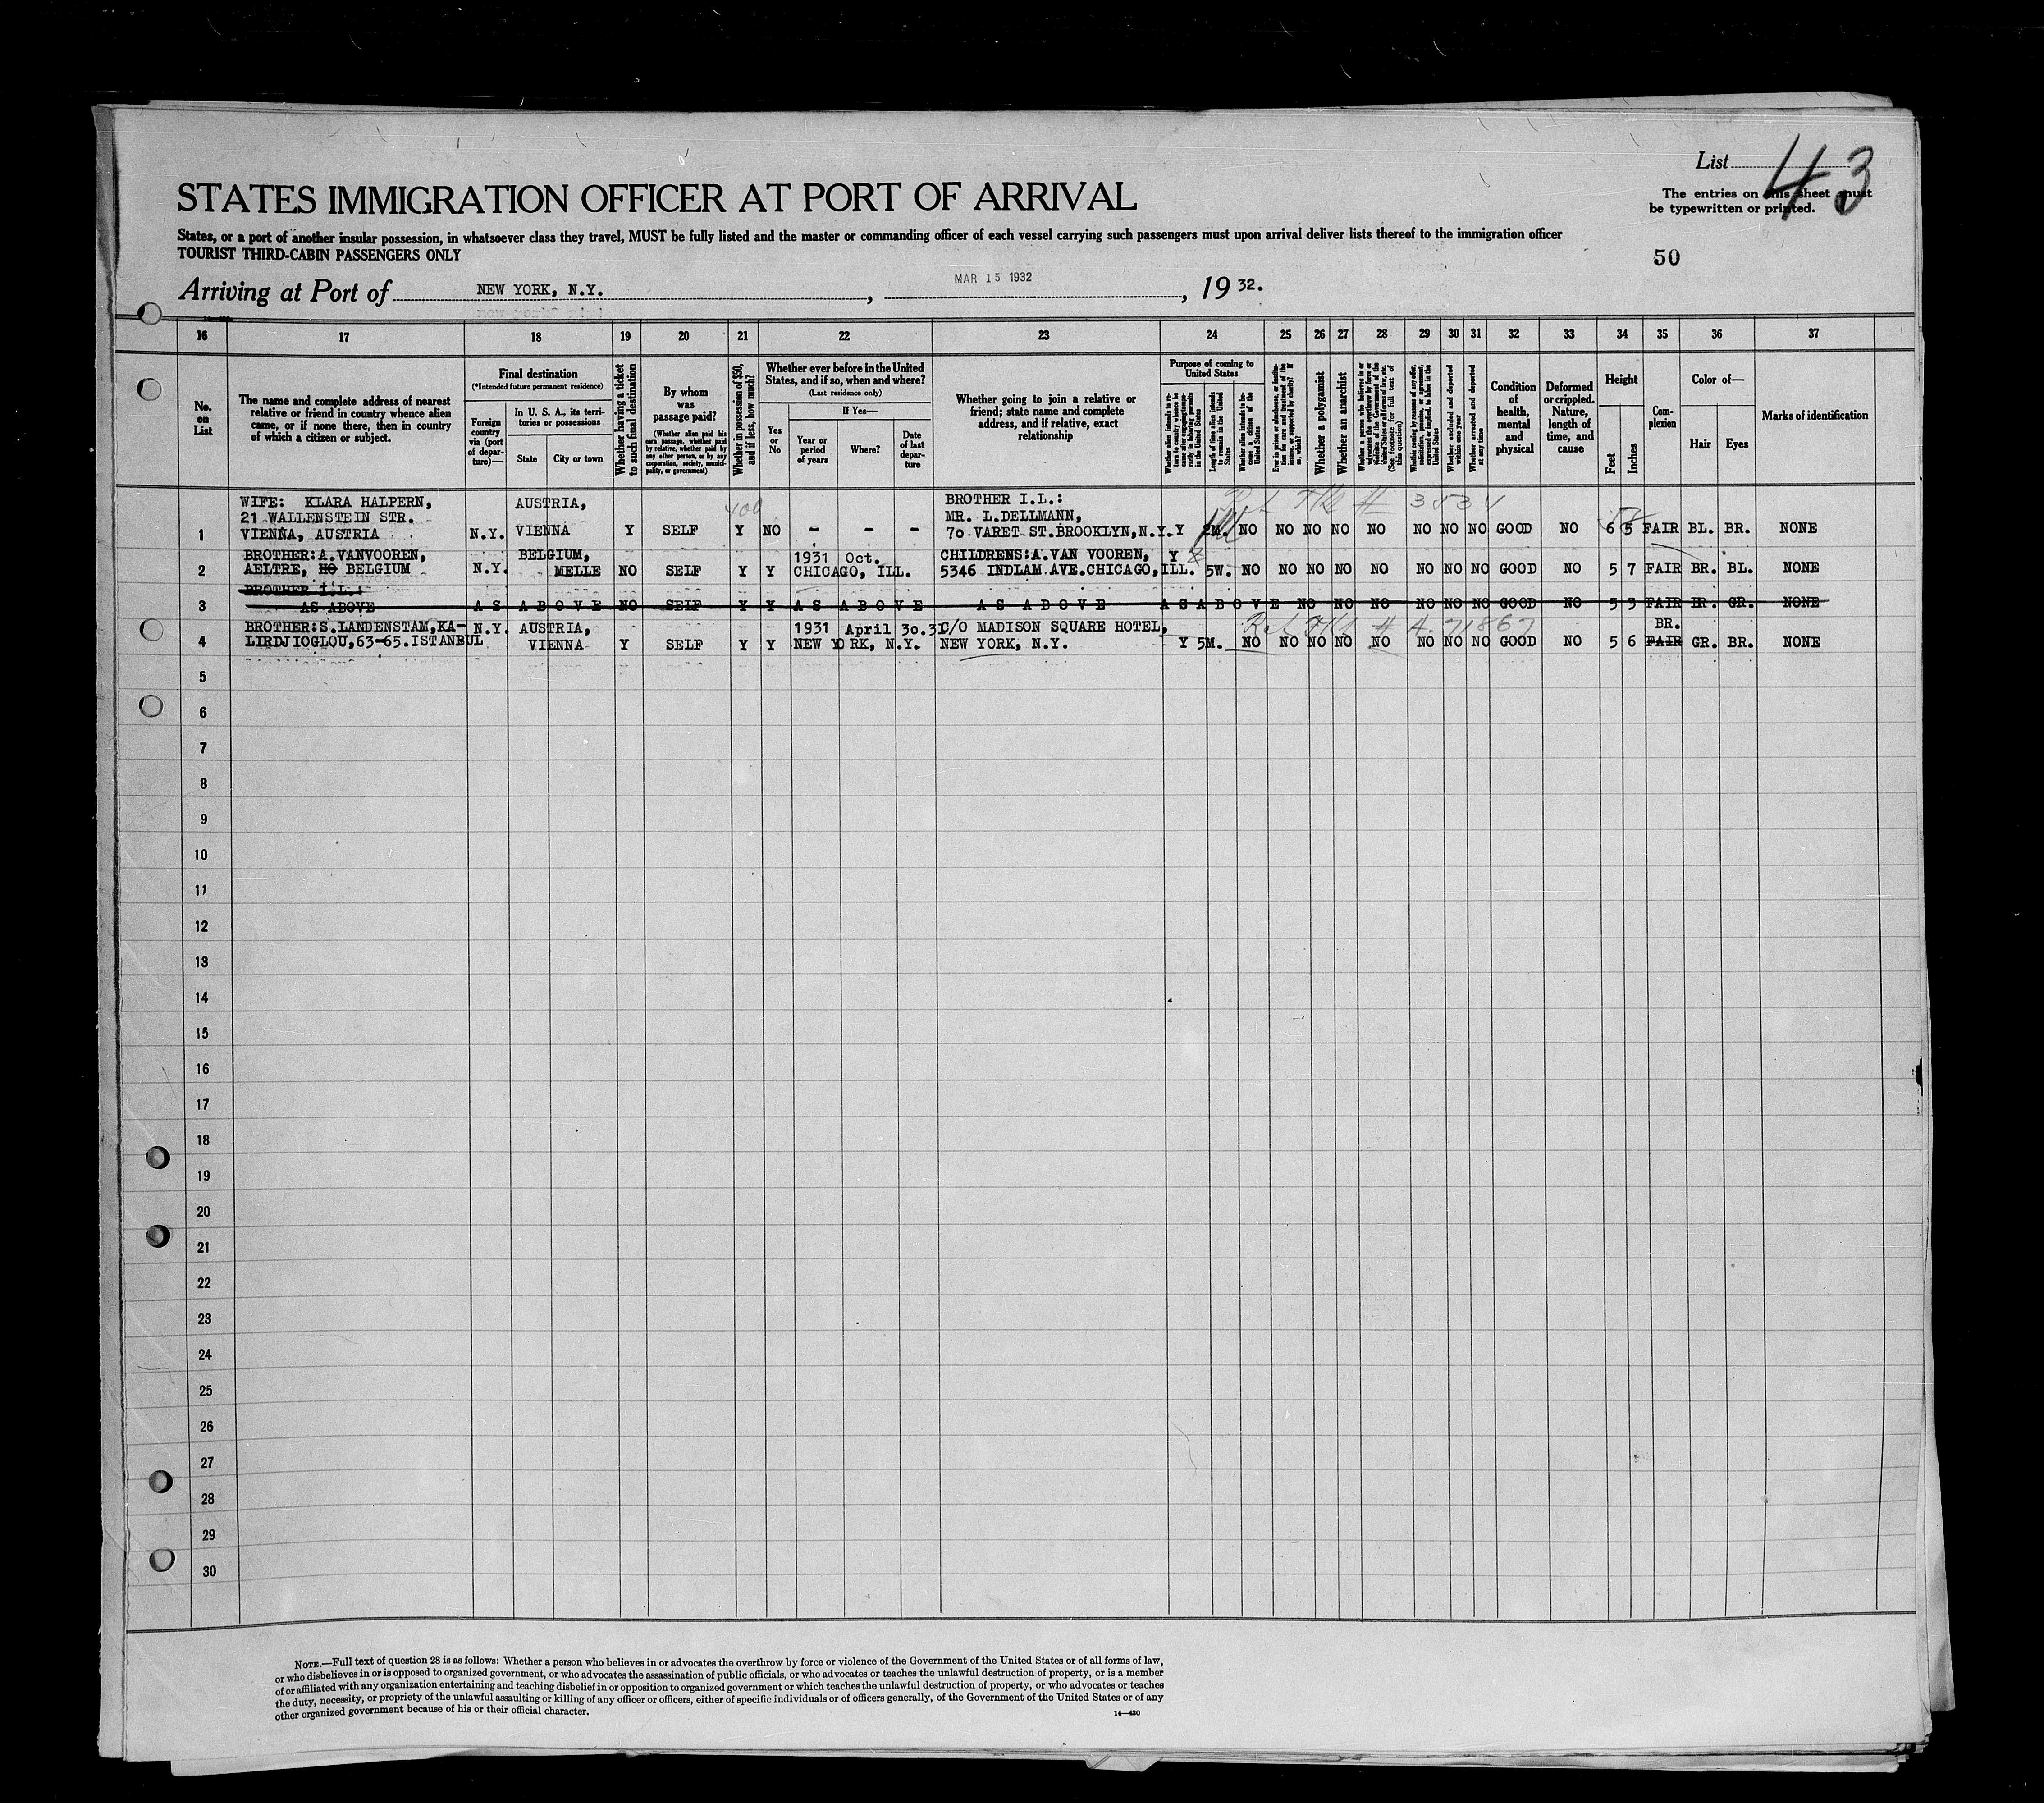 List 43
STATES IMMIGRATION OFFICER AT PORT OF ARRIVAL
The entries on this sheet must
be typewritten or printed.
States, or a port of another insular possession, in whatsoever class they travel, MUST be fully listed and the master or commanding officer of each vessel carrying such passengers must upon arrival deliver lists thereof to the immigration officer
TOURIST THIRD-CABIN PASSENGERS ONLY
50
Arriving at Port of NEW YORK, N.Y. , MAR 15 1932 , 19 32.
16 17 18 19 20 21 22 23 24 25 26 27 28 29 30 31 32 33 34 35 36 37
No.
on
List
The name and complete address of nearest
relative or friend in country whence alien
came, or if none there, then in country
of which a citizen or subject.
Final destination
(*Intended future permanent residence)
Foreign
country
via (port
of depar-
ture)—
In U. S. A., its terri-
tories or possessions
State City or town
Whether having a ticket
to such final destination
By whom
was
passage paid?
(Whether alien paid his
own passage, whether paid
by relative, whether paid by
any other person, or by any
corporation, society, munici-
pality, or government)
Whether in possession of $50,
and if less, how much?
Whether ever before in the United
States, and if so, when and where?
(Last residence only)
Yes
or
No
If Yes—
Year or
period
of years
Where?
Date
of last
depar-
ture
Whether going to join a relative or
friend; state name and complete
address, and if relative, exact
relationship
Purpose of coming to
United States
Whether alien intends to re-
turn to country whence he
came after engaging tempo-
rarily in laboring pursuits
in the United States
Length of time alien intends
to remain in the United
States
Whether alien intends to be-
come a citizen of the
United States
Ever in prison or almshouse, or institu-
tion for care and treatment of the
insane, or supported by charity? If
so, which?
Whether a polygamist
Whether an anarchist
Whether a person who believes in or
advocates the overthrow by force or
violence of the Government of the
United States or all forms of law, etc.
(See footnote for full text of
this question)
Whether coming by reason of any offer,
solicitation, promise, or agreement,
expressed or implied, to labor in the
United States
Whether excluded and deported
within one year
Whether arrested and deported
at any time
Condition
of
health,
mental
and
physical
Deformed
or crippled.
Nature,
length of
time, and
cause
Height
Feet
Inches
Com-
plexion
Color of—
Hair Eyes
Marks of identification
WIFE: KLARA HALPERN, AUSTRIA, 400 BROTHER I.L.:
21 WALLENSTEIN STR. MR. L.DELLMANN,
1 VIENNA, AUSTRIA N.Y. VIENNA Y SELF Y NO - - - 70 VARET ST.BROOKLYN,N.Y. Y 2M. NO NO NO NO NO NO NO NO GOOD NO 6 5 FAIR BL. BR. NONE
BROTHER:A.VANVOOREN, BELGIUM, 1931 Oct. CHILDRENS:A.VAN VOOREN, Y
2 AELTRE, HO BELGIUM N.Y. MELLE NO SELF Y Y CHICAGO, ILL. 5346 INDLAM AVE.CHICAGO,ILL. 5W. NO NO NO NO NO NO NO NO GOOD NO 5 7 FAIR BR. BL. NONE
BROTHER I.L.:
3 AS ABOVE AS ABOVE NO SELF Y Y AS ABOVE AS ABOVE AS ABOVE NO NO NO NO NO NO NO GOOD NO 5 3 FAIR GR. NONE
BROTHER:S.LANDENSTAM,KA- N.Y. AUSTRIA, 1931 April 30.31 C/O MADISON SQUARE HOTEL, BR.
4 LIRDJIOGLOU,63-65.ISTANBUL VIENNA Y SELF Y Y NEW YORK, N.Y. NEW YORK, N.Y. Y 5M. NO NO NO NO NO NO NO NO GOOD NO 5 6 FAIR GR. BR. NONE
5
6
7
8
9
10
11
12
13
14
15
16
17
18
19
20
21
22
23
24
25
26
27
28
29
30
NOTE.—Full text of question 28 is as follows: Whether a person who believes in or advocates the overthrow by force or violence of the Government of the United States or of all forms of law,
or who disbelieves in or is opposed to organized government, or who advocates the assassination of public officials, or who advocates or teaches the unlawful destruction of property, or is a member
of or affiliated with any organization entertaining and teaching disbelief in or opposition to organized government or which teaches the unlawful destruction of property, or who advocates or teaches
the duty, necessity, or propriety of the unlawful assaulting or killing of any officer or officers, either of specific individuals or of officers generally, of the Government of the United States or of any
other organized government because of his or their official character.
14—430